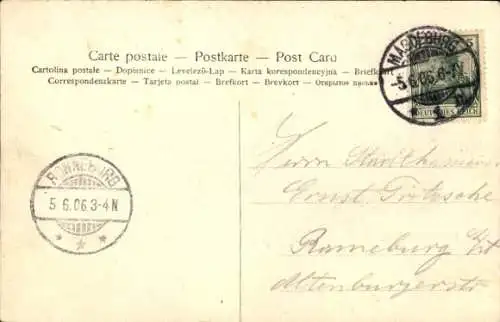 Carte postale — Postkarte — Post Card
Cartolina postale — Dopisnice — Levelező-Lap — Karta korespondencyjna — Briefkort
Correspondenzkarte — Tarjeta postal — Brefkort — Brevkort — Открытое письмо
MAGDEBURG
5.6.06.6-7N
DEUTSCHES REICH
RONNEBURG
5 6.06 3-4N
Herrn
Ernst Fritzsche
Ronneburg
Altenburgerstr